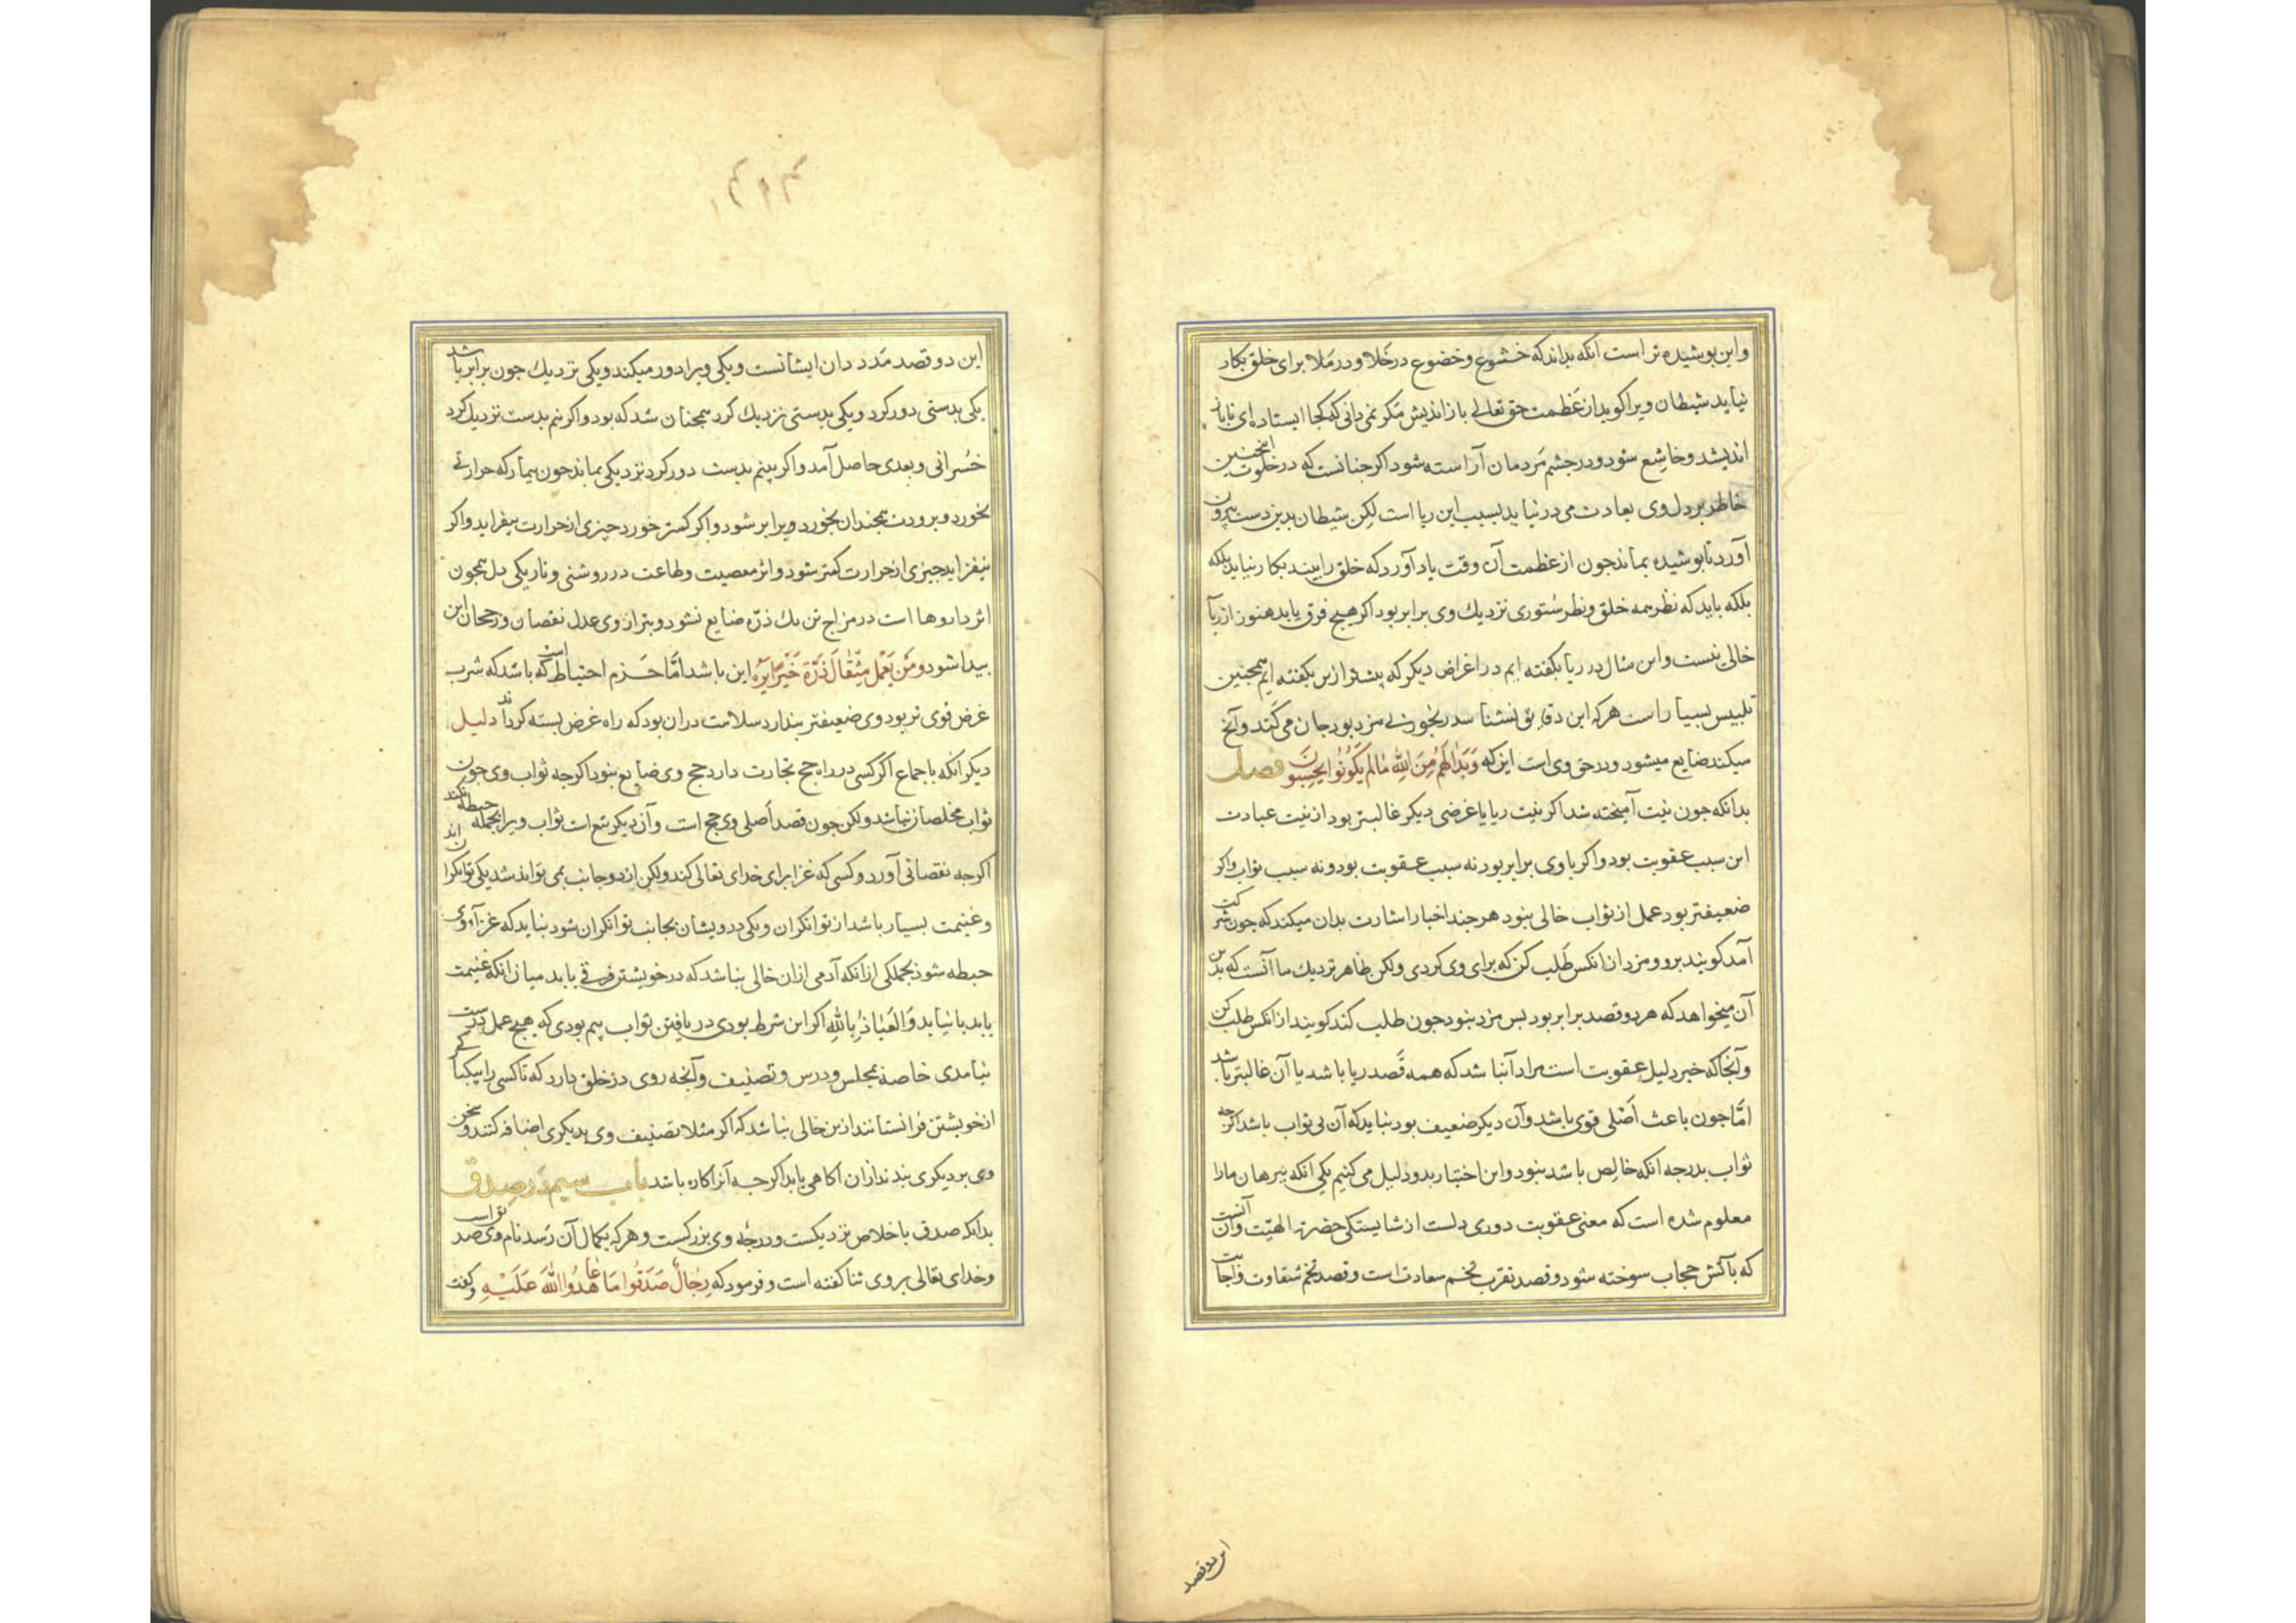 واین پوشیده تر است آنکه بداند که خشوع و خضوع در خلا و در ملا برای خلق بکار
نیاید شیطان ویرا کوید از عظمت حق تعالی باز اندیش مکر نمی دانی که کجا ایستاده ای تا باز
اندیشد و خاشع شود و در چشم مردمان آراسته شود اکر چنانست که در خلوت اینچنین
خاطر بر دل وی بعادت می درنیاید بسبب این ریا است لکن شیطان بدین دست بیرون
آورد تا پوشیده بماند جون از عظمت آن وقت یاد آورد که خلق را بیند بکار نیاید بلکه
بلکه باید که نظر همه خلق و نظر ستوری نزدیك وی برابر بود اکر هیچ فرق یابد هنوز از ریا
خالی نیست واین مثال در ریا بکفته ایم در اغراض دیکر که پیشتر ازین بکفته ایم همچنین
تلبیس بسیار است هرکه این دقایق نشناسد رنجور بی مزد بود جان می کند وآنج
میکند ضایع میشود ودر حق وی است این که وَبَدَا لَهُم مِنَ اللهِ مَا لَم یَکُونُوا یَحتَسِبُونَ فصل
بدانکه جون نیت آمیخته شد اکر نیت ریا یا غرضی دیکر غالبتر بود از نیت عبادت
این سبب عقوبت بود واکر با وی برابر بود نه سبب عقوبت بود ونه سبب ثواب واکر
ضعیفتر بود عمل از ثواب خالی نبود هرچند اخبار اشارت بدان میکند که جون شرکت
آمد کویند برو ومزد ازانکس طلب کن که برای وی کردی ولکن ظاهر نزدیك ما آنست که بدین
آن میخواهد که هردو قصد برابر بود پس مزد نبود جون طلب کند کویند از انکس طلب کن
وآنجا که خبر دلیل عقوبت است مراد آنباشد که همه قصد ریا باشد یا آن غالبتر باشد
امّا جون باعث اصلی قوی باشد وآن دیکر ضعیف بود نباید که آن بی ثواب باشد اکرچه
ثواب بدرجه آنکه خالص باشد نبود واین اختیار بدو دلیل می کنیم یکی آنکه ببرهان مارا
معلوم شده است که معنی عقوبت دوری دلست از شایستکی حضرت الهیّت وآن آنست
که بآتش حجاب سوخته شود وقصد تقرب تخم سعادت است وقصد تخم شقاوت واجابت
این دو قصد
این دو قصد مدد دان ایشانست ویکی ویرا دور میکند ویکی نزدیك جون برابر باشد
یکی بدستی دور کرد ویکی بدستی نزدیك کرد همجنان شد که بود واکر نیم بدست نزدیك کرد
خسرانی وبعدی حاصل آمد واکر بینم بدست دور کرد نزدیکی بماند جون بیمار که حرارتی
بخورد وبرودت همجندان بخورد ویرا برابر شود واکر کمتر خورد چیزی از حرارت بیفزاید واکر
نیفزاید جیزی از حرارت کمتر شود واثر معصیت وطاعت در روشنی وتاریکی دل همجون
اثر داروها است در مزاج تن یك ذرّه ضایع نشود وبترازوی عدل نقصان ورجحان این
پیدا شود ومَن یَعمَل مِثقَالَ ذَرَّةٍ خَیراً یَرَه این باشد امّا حزم احتیاط آنست که باشد که شرب
غرض قوی تر بود وی ضعیفتر پندارد سلامت دران بود که راه غرض بسته کرداند دلیل
دیکر آنکه باجماع اکر کسی در راه حج تجارت دارد حج وی ضایع نبود اکرجه ثواب وی جون
ثواب مخلصان نباشد ولکن جون قصد اصلی وی حج است وآن دیکر تبع است ثواب ویرا بجمله حبطه نکند
اکرجه نقصانی آورد وکسی که غزا برای خدای تعالی کند ولکن از دو جانب می تواند شد یکی توانکرانند
وغنیمت بسیار باشد از توانکران ویکی درویشان بجانب توانکران شود نباید که غزآء وی
حبطه شود بجملکی ازانکه آدمی ازان خالی نباشد که در خویشتن فرقی یابد میان انکه غنیمت
یابد یا نیابد وَالعِیَاذُ بِاللهِ اکر این شرط بودی در یافتن ثواب بیم بودی که هیچ عمل درست
نیامدی خاصه مجلس ودرس وتصنیف وآنجه روی در خلق دارد که تا کسی را بیکبار کم
از خویشتن فرانستانند ازین خالی نباشد که اکر مثلا تصنیف وی بدیکری اضافه کنند وسخن
وی بر دیکری بندند ازان آکاهی یابد اکرجه آنرا کاره باشد باب سیم در صدق
بدانکه صدق باخلاص نزدیکست ودرجه وی بزرکست وهرکه بکمال آن رسد نام وی صد
وخدای تعالی بر وی ثنا کفته است وفرمود که رِجَالٌ صَدَقُوا مَا عَاهَدُوا اللهَ عَلَیهِ وکفت